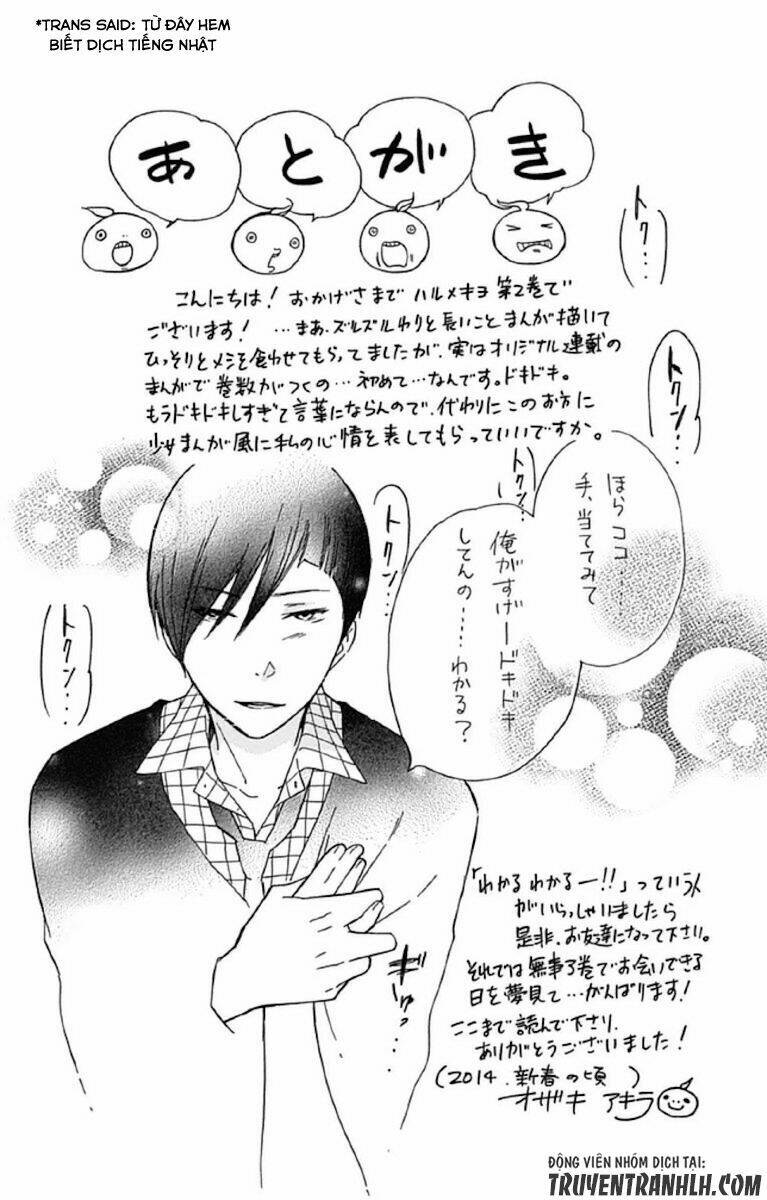 *TRANS SAID: TỪ ĐÂY HEM
BIẾT DỊCH TIẾNG NHẬT
あとがき
こんにちは！おかげさまで ハルメキヨ 第2巻で
ございます！…まあ、ズルズルわりと長いことまんが描いて
ひっそりとメシを食わせてもらってましたが、実はオリジナル連載の
まんがで巻数がつくの…初めて…なんです。ドキドキ。
もうドキドキしすぎて言葉にならんので、代わりにこのお方に
少女まんが風に私の心情を表してもらっていいですか。
トクン…
トクン…
トクン…
トクン…
トクン…
ほらココ……
手、当ててみて
俺がすげードキドキ
してんの……わかる？
ギュッ…
「わかるわかるー!!」っていう人
がいらっしゃいましたら
是非、お友達になって下さい。
それでは無事3巻でお会いできる
日を夢見て…がんばります！
ここまで読んで下さり、
ありがとうございました！
(2014.新春の頃 )
オザキ アキラ
ĐỘNG VIÊN NHÓM DỊCH TẠI:
TRUYENTRANHLH.COM